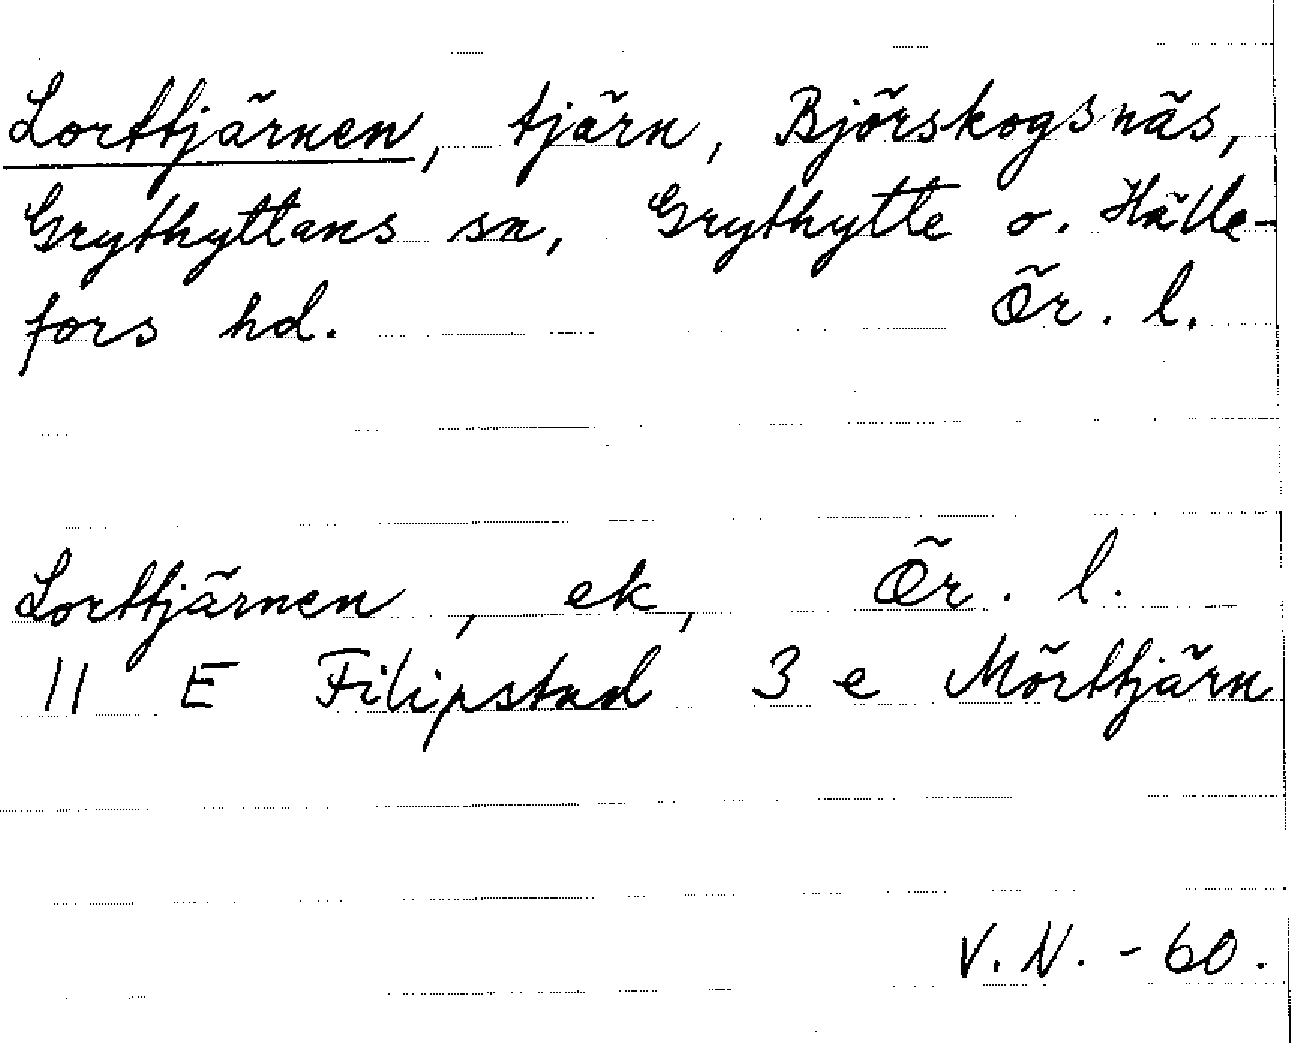 Lorttjärnen, tjärn, Björskogsnäs,
Grythyttans sn, Grythytte o. Hälle-
fors hd. Ör. l.
Lorttjärnen, ek, Ör. l.
11 E Filipstad 3 e Mörttjärn
V. N. - 60.